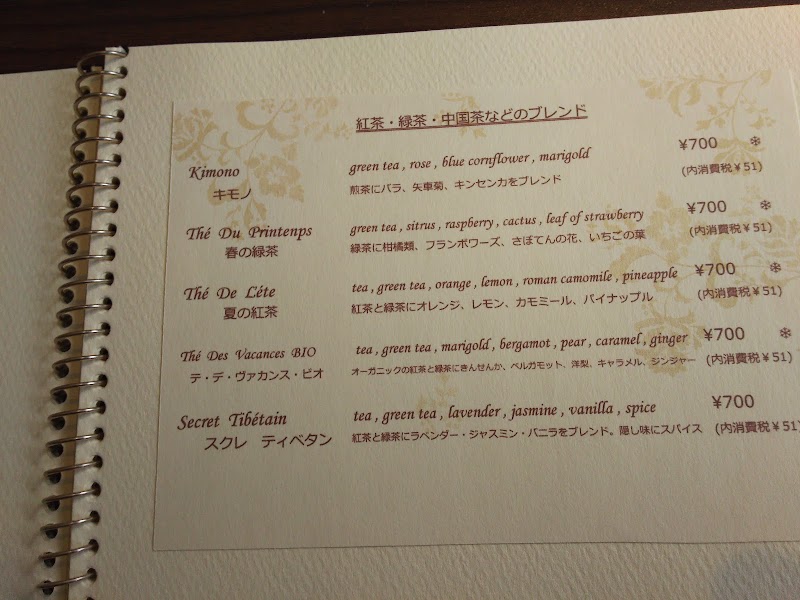 紅茶・緑茶・中国茶などのブレンド
Kimono green tea , rose , blue cornflower , marigold ¥700 ❄
キモノ 煎茶にバラ、矢車菊、キンセンカをブレンド (内消費税¥51)
Thé Du Printenps green tea , sitrus , raspberry , cactus , leaf of strawberry ¥700 ❄
春の緑茶 緑茶に柑橘類、フランボワーズ、さぼてんの花、いちごの葉 (内消費税¥51)
Thé De Léte tea , green tea , orange , lemon , roman camomile , pineapple ¥700 ❄
夏の紅茶 紅茶と緑茶にオレンジ、レモン、カモミール、パイナップル (内消費税¥51)
Thé Des Vacances BIO tea , green tea , marigold , bergamot , pear , caramel , ginger ¥700 ❄
テ・デ・ヴァカンス・ビオ オーガニックの紅茶と緑茶にきんせんか、ベルガモット、洋梨、キャラメル、ジンジャー (内消費税¥51)
Secret Tibétain tea , green tea , lavender , jasmine , vanilla , spice ¥700
スクレ ティベタン 紅茶と緑茶にラベンダー・ジャスミン・バニラをブレンド。隠し味にスパイス (内消費税¥51)